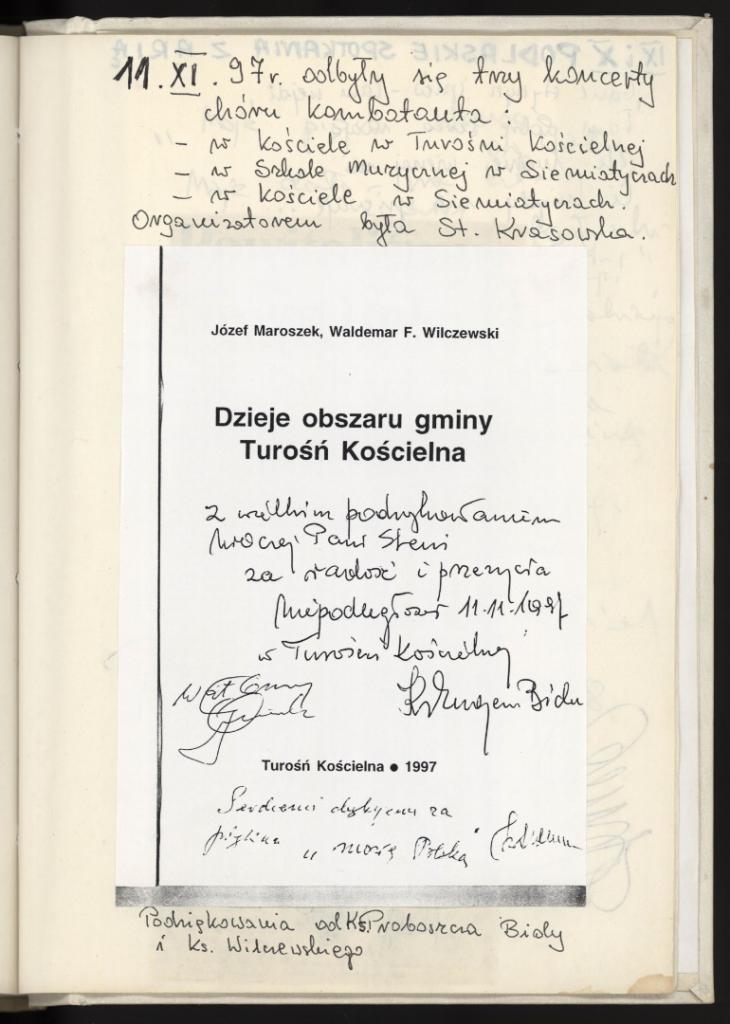 11. XI. 97r. odbyły się trzy koncerty
chóru kombatanta :
– w kościele w Turośni Kościelnej
– w Szkole Muzycznej w Siemiatyczach
– w kościele w Siemiatyczach.
Organizatorem była St. Krasowska.
Józef Maroszek, Waldemar F. Wilczewski
Dzieje obszaru gminy
Turośń Kościelna
z wielkim podziękowaniem
Pani Steni
za radość i przeżycia
Niepodległości 11.11.1997
w Turośni Kościelnej
Turośń Kościelna ● 1997
Serdecznie dziękujemy za
piękną "moją Polskę"
Podziękowania od Ks. Proboszcza Biały
i ks. Wilczewskiego